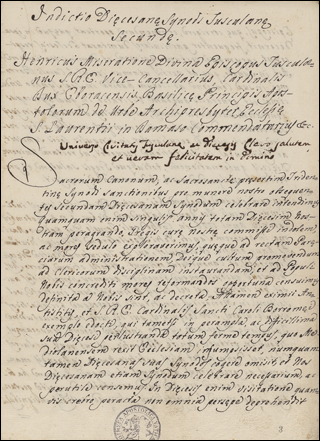 Indictio Diœcesanæ Synodi Tusculanæ
Secundæ.
Henricus Miseratione Divina Episcopus Tuscula-
nus S.R.E. Vice-Cancellarius, Cardinalis
Dux Eboracensis Basilicæ Principis Apos-
tolorum de Urbe Archipresbyter Ecclesiæ
S. Laurentii in Damaso Commendatarius &c.
Universo Civitatis Tusculanæ ac Diœcesis Clero salutem
et veram felicitatem in Domino
Sacrorum Canonum, ac Sacrosanctæ præsertim Triden-
tinæ Synodi sanctionibus pro munere nostro obsequen-
tes secundam Diœcesanam Synodum celebrare intendimus
quamquam enim singulis annis totam Diœcesim nos-
tram peragrando, Gregis curæ nostræ commissi indolem,
ac mores sedulo exploraverimus, quæque ad rectam Sacra-
mentorum administrationem Deique cultum promovendum
ad Clericorum disciplinam instaurandam, et ad Populi
Nobis concrediti mores reformandos opportuna censuimus
definita a Nobis sint, ac decreta. Attamen eximii An-
tistitis, et S.R.E. Cardinalis Sancti Caroli Borromei
exemplo docti, qui tametsi in peramplam, ac difficillimam
sub Diœcesi perlustrandam totum fermè tempus, quo Me-
diolanensem rexit Ecclesiam, insumpsisset, numquam
tamen Diœcesanas Synodos cogere omisit et Nos
Diœcesanam etiam Synodum celebrare necessarium, ac
perutile censemus. In Diœcesis enim visitatione quam-
vis crebro peracta non omnia persæpe deprehendit
3